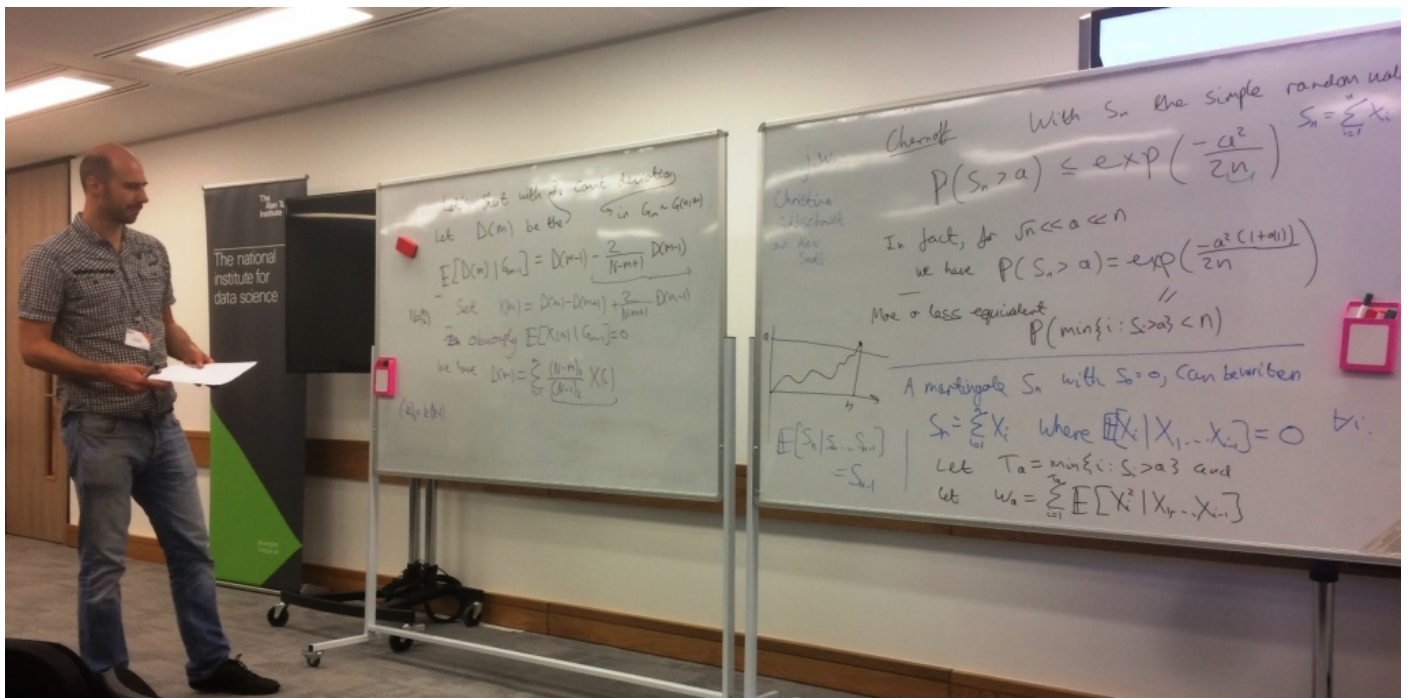 The
Alan Tu
Institute
The national
institute for
data science
with
count deviation
Let D(m) be the
in Gₘ ~ G(n,m)
E[D(m) | Gₘ₋₁] = D(m-1) - 2/(N-m+1) D(m-1)
Set X(m) = D(m) - D(m-1) + 2/(N-m+1) D(m-1)
obviously E[X(m) | Gₘ₋₁] = 0
We have D(m) =
j.w.
Christina
Chernoff
With Sₙ the simple random wal
Sₙ = ∑ᵢ₌₁ⁿ Xᵢ
P(Sₙ > a) ≤ exp(-a²/2n)
In fact, for √n << a << n
we have P(Sₙ > a) = exp(-a²(1+o(1))/2n)
More or less equivalent
P(min{i : Sᵢ > a} < n)
a
E[Sₙ | S₀...Sₙ₋₁]
= Sₙ₋₁
A martingale Sₙ with S₀ = 0, can be writen
Sₙ = ∑ᵢ₌₁ⁿ Xᵢ where E[Xᵢ | X₁,...Xᵢ₋₁] = 0 ∀i.
Let Tₐ = min{i : Sᵢ > a} and
let Wₐ = ∑ᵢ₌₁^Tₐ E[Xᵢ² | X₁,...,Xᵢ₋₁]